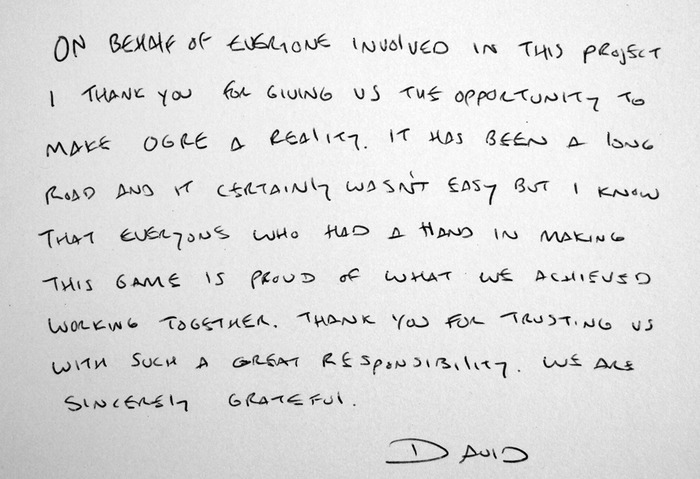 ON BEHALF OF EVERYONE INVOLVED IN THIS PROJECT
I THANK YOU FOR GIVING US THE OPPORTUNITY TO
MAKE OGRE A REALITY. IT HAS BEEN A LONG
ROAD AND IT CERTAINLY WASN'T EASY BUT I KNOW
THAT EVERYONE WHO HAD A HAND IN MAKING
THIS GAME IS PROUD OF WHAT WE ACHIEVED
WORKING TOGETHER. THANK YOU FOR TRUSTING US
WITH SUCH A GREAT RESPONSIBILITY. WE ARE
SINCERELY GRATEFUL.
DAVID